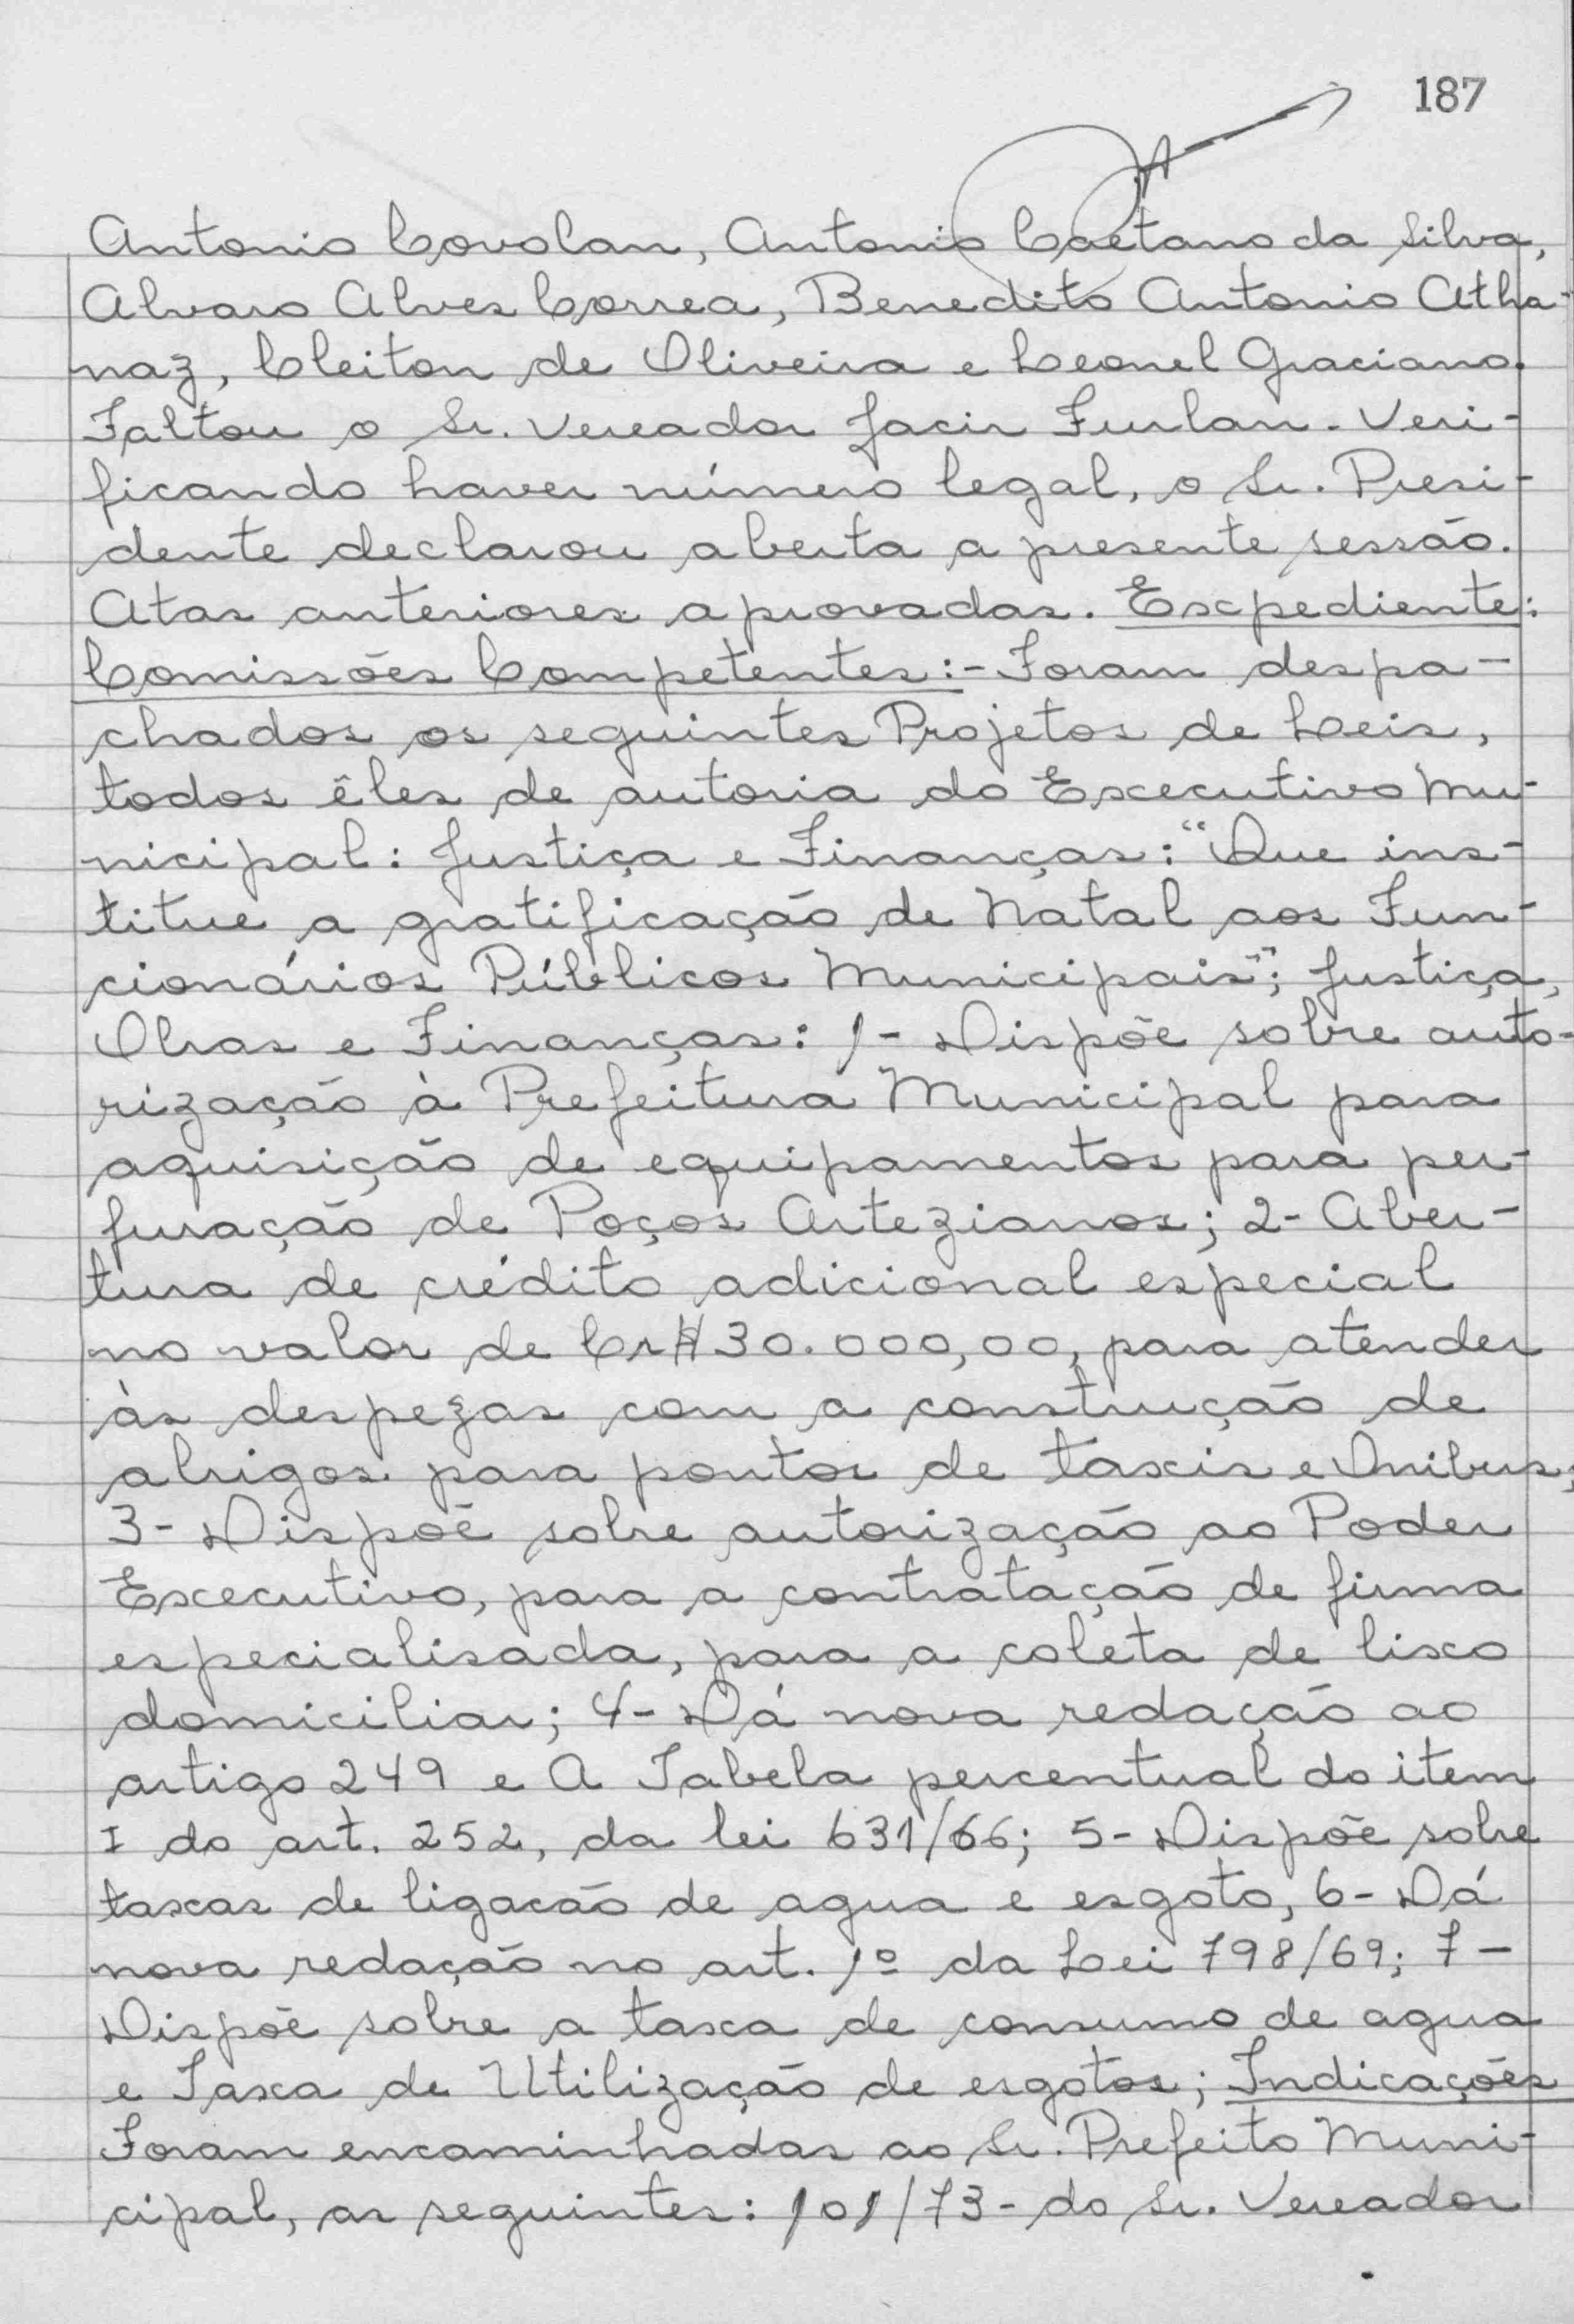 187
Antonio Covolan, Antonio Caetano da Silva,
Alvaro Alves Correa, Benedito Antonio Atha-
naz, Cleiton de Oliveira e Leonel Graciano.
Faltou o Sr. Vereador Jacir Furlan. Veri-
ficando haver número legal, o Sr. Presi-
dente declarou aberta a presente sessão.
Atas anteriores aprovadas. Expediente:
Comissões Competentes:- Foram despa-
chados os seguintes Projetos de Leis,
todos êles de autoria do Executivo Mu-
nicipal: Justiça e Finanças: "Que ins-
titue a gratificação de Natal aos Fun-
cionários Públicos Municipais"; Justiça,
Obras e Finanças: 1- Dispõe sobre auto-
rização à Prefeitura Municipal para
aquisição de equipamentos para per-
furação de Poços Artezianos; 2- Aber-
tura de crédito adicional especial
no valor de Cr$ 30.000,00, para atender
às despezas com a construção de
abrigos para pontos de taxis e Onibus;
3- Dispõe sobre autorização ao Poder
Executivo, para a contratação de firma
especialisada, para a coleta de lixo
domiciliar; 4- Dá nova redação ao
artigo 249 e A Tabela percentual do item
I do art. 252, da lei 631/66; 5- Dispõe sobre
taxas de ligacão de agua e esgoto, 6- Dá
nova redação no art. 1º da Lei 798/69; 7-
Dispõe sobre a taxa de consumo de agua
e Taxa de Utilização de esgotos; Indicações
Foram encaminhadas ao Sr. Prefeito Muni-
cipal, as seguintes: 101/73- do Sr. Vereador